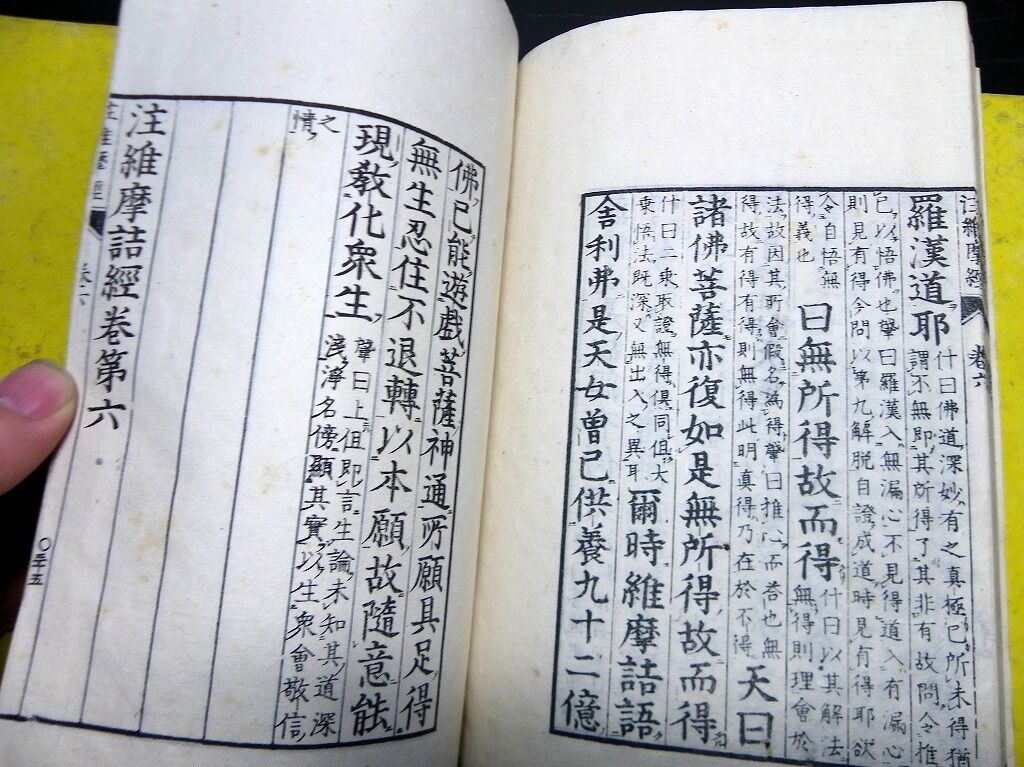 注維摩經 卷六
羅漢道耶
什曰佛道深妙有之真極已所未得猶
謂不無即其所得了其非有故問令推
已以悟佛也肇曰羅漢入無漏心不見得道入有漏心
則見有得今問以第九解脫自證成道時見有得耶欲
令自悟無
得義也
曰無所得故而得
什曰以其解法
無得則理會於
法故因其所會假名為得肇曰推心而答也無
得故有得有得則無得此明真得乃在於不得
天曰
諸佛菩薩亦復如是無所得故而得
什曰二乘取證無得俱同但大
乘悟法既深又無出入之異耳
爾時維摩詰語
舍利弗是天女曾已供養九十二億
佛已能遊戲菩薩神通所願具足得
無生忍住不退轉以本願故隨意能
現教化眾生
肇曰上但即言生論未知其道深
淺淨名傍顯其實以生眾會敬信
之
情
注維摩詰經卷第六
注維摩經 卷六 〇三十五